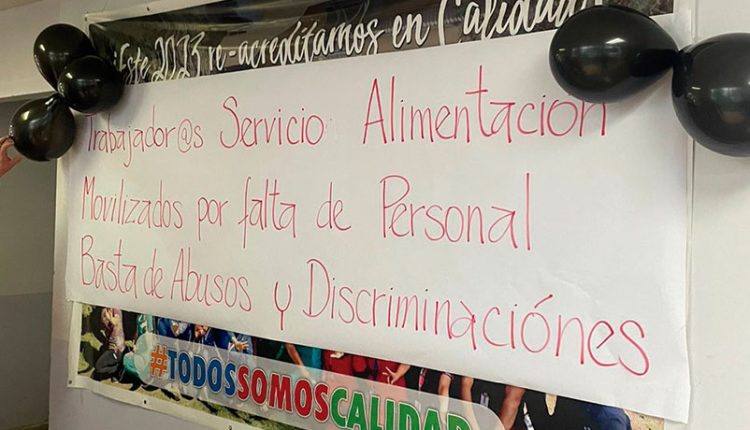 ¡Este 2023 re-acreditamos en Calidad!
Trabajador@s Servicio Alimentacion
Movilizados por falta de Personal
Basta de Abusos y Discriminaciónes
#TODOSSOMOSCALIDAD